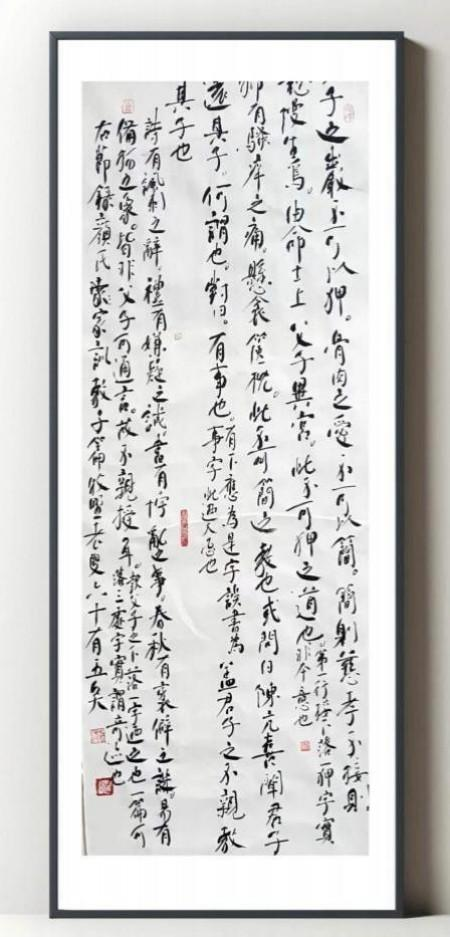 子之嚴不可以狎。骨肉之愛不可以簡。簡則慈孝不接。則
怠慢生焉。由命士上父子異宮。此不可狎之道也
第一行接下落一狎字實
非今意也
抑有騷痒之痛。懸衾篋枕。此不可簡之教也或問曰陳亢喜聞君子
遠其子。何謂也。對曰。有事也。
有下應為是字誤書為
事字此過人急也
蓋君子之不親教
其子也
詩有諷刺之辭。禮有嫌疑之誡。書有悖亂之事。春秋有衺僻之譏。易有
備物之象。皆非父子可通言。故不親授耳。
父子之下落一字過之也一篇可
落三處字實謂奇也
右節錄顏氏家訓教子篇牧野老叟六十有五矣